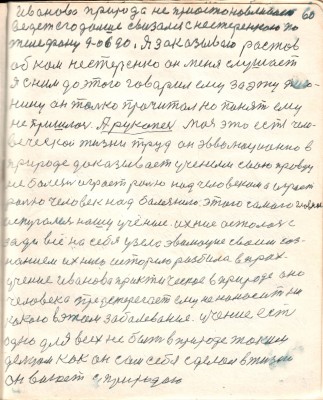 Иванова природа не приостановливает 60
ведет его дальше связался с нестеренком по
телефону 9-06 90. Я заказываю ростов
обком нестеренко он меня слушает
Я с ним до этого говарил ему за эту
нину он только прочитал но понять ему
не пришлось. А рукопись моя это есть чело-
веческой жизни труд он эволюционно в
природе доказывает ученым свою правду
не болезнь играет ролю над человеком а играет
ролю человек над болезнью. этого самого
испугалось нашу учение. их ние осталось с
зади все на себя узело эволюцие своим соз-
нанием их нюю историю разбила в прах.
учение Иванова практическое в природе оно
человека предстерегает ему не наносит ни
какого в этом заболевание. учение есть
одно для всех не быть в природе таким
делом как он сам себя сделал в жизни
он воюет с природою